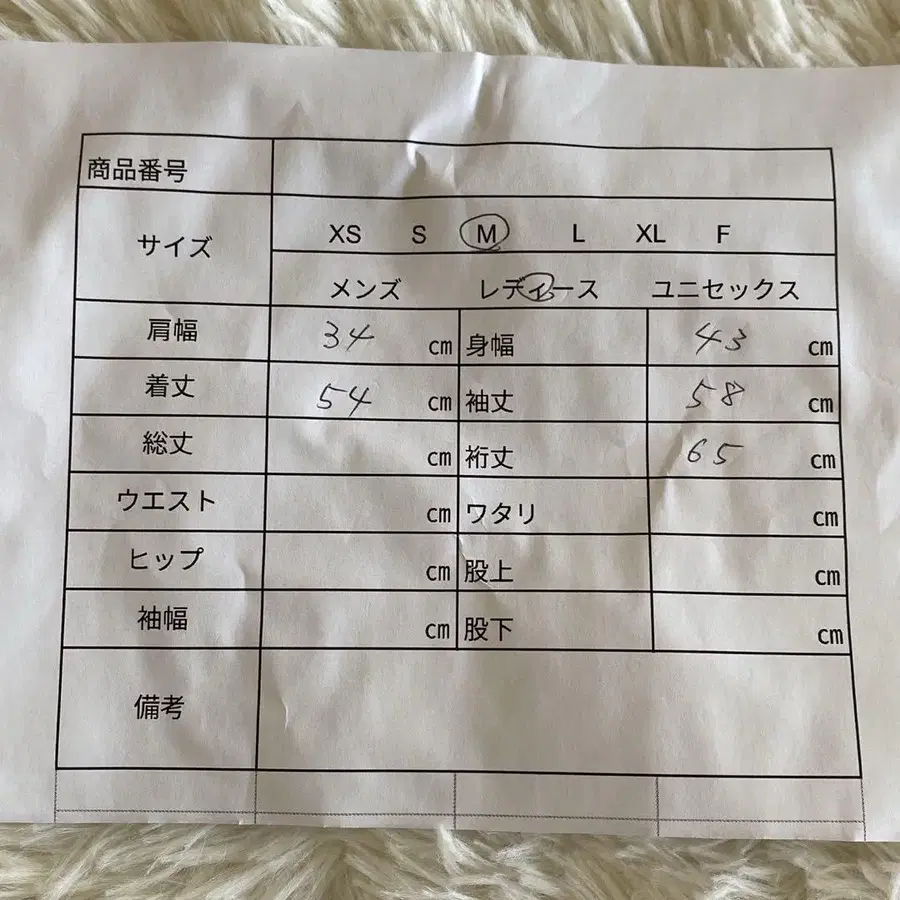 商品番号
サイズ XS S M L XL F
メンズ レディース ユニセックス
肩幅 34 cm 身幅 43 cm
着丈 54 cm 袖丈 58 cm
総丈 cm 裄丈 65 cm
ウエスト cm ワタリ cm
ヒップ cm 股上 cm
袖幅 cm 股下 cm
備考